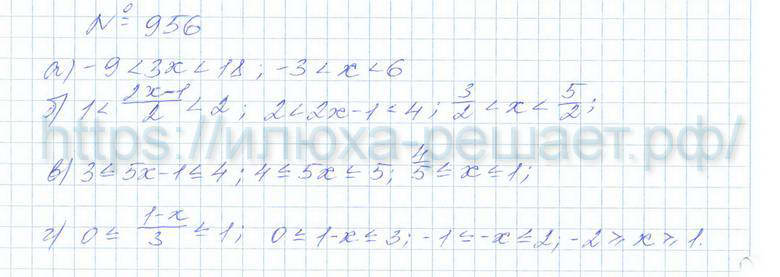 № 956
а) -9 < 3x < 18; -3 < x < 6
б) 1 < (2x-1)/2 < 2; 2 < 2x-1 < 4; 3/2 < x < 5/2;
https://илюха-решает.рф/
в) 3 ≤ 5x-1 ≤ 4; 4 ≤ 5x ≤ 5; 4/5 ≤ x ≤ 1;
г) 0 ≤ (1-x)/3 ≤ 1; 0 ≤ 1-x ≤ 3; -1 ≤ -x ≤ 2; -2 ≥ x ≥ 1.